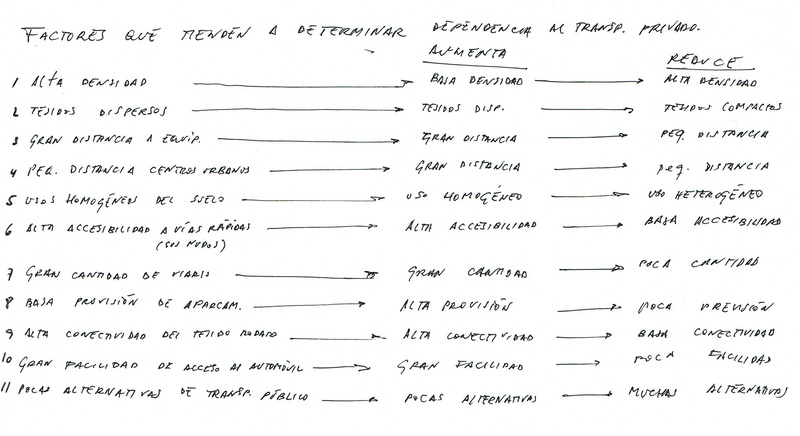 FACTORES QUE TIENDEN A DETERMINAR DEPENDENCIA AL TRANSP. PRIVADO.
AUMENTA REDUCE
1 ALTA DENSIDAD → BAJA DENSIDAD → ALTA DENSIDAD
2 TEJIDOS DISPERSOS → TEJIDOS DISP. → TEJIDOS COMPACTOS
3 GRAN DISTANCIA A EQUIP. → GRAN DISTANCIA → PEQ. DISTANCIA
4 PEQ. DISTANCIA CENTROS URBANOS → GRAN DISTANCIA → PEQ. DISTANCIA
5 USOS HOMOGÉNEOS DEL SUELO → USO HOMOGÉNEO → USO HETEROGÉNEO
6 ALTA ACCESIBILIDAD A VÍAS RÁPIDAS → ALTA ACCESIBILIDAD → BAJA ACCESIBILIDAD
(SUS NUDOS)
7 GRAN CANTIDAD DE VIARIO → GRAN CANTIDAD → POCA CANTIDAD
8 BAJA PROVISIÓN DE APARCAM. → ALTA PROVISIÓN → POCA PREVISIÓN
9 ALTA CONECTIVIDAD DEL TEJIDO RODADO → ALTA CONECTIVIDAD → BAJA CONECTIVIDAD
10 GRAN FACILIDAD DE ACCESO AL AUTOMÓVIL → GRAN FACILIDAD → POCA FACILIDAD
11 POCAS ALTERNATIVAS DE TRANSP. PÚBLICO → POCAS ALTERNATIVAS → MUCHAS ALTERNATIVAS